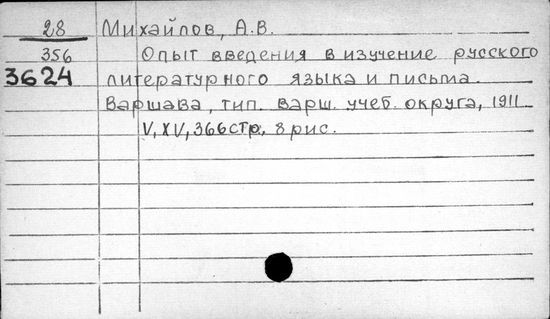 28 Михайлов, А.В.
356 Опыт введения в изучение русского
3624 литературного языка и письма.
Варшава, тип. Варш. учеб. округа, 1911
V, XV, 366 стр, 8 рис.